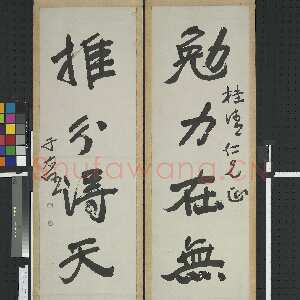 勉力在無
桂清仁兄正
推分得天
于右任
Shufawang.CN